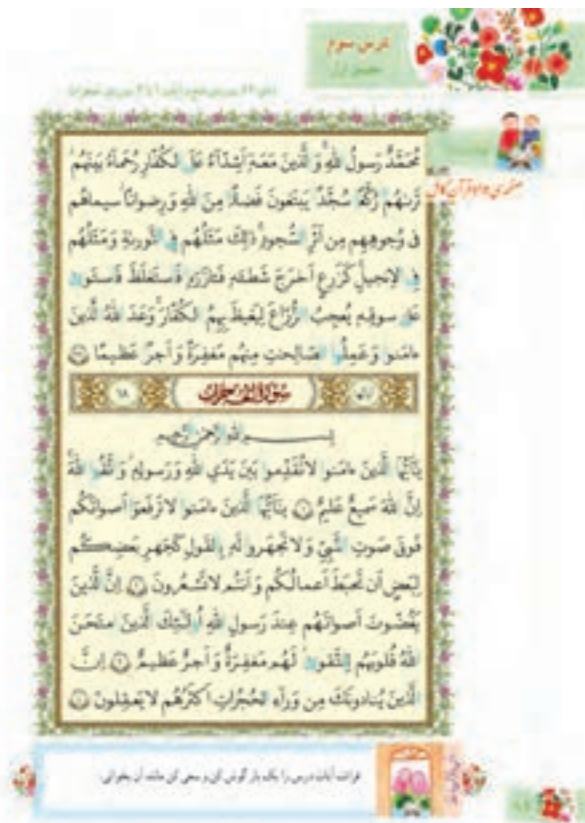 درس سوم
جلسهٔ اول
آیهٔ ۲۹ سوره‌ی فتح و آیات ۱ تا ۴ سوره‌ی حجرات
مُحَمَّدٌ رَسولُ اللهِ وَ الَّذینَ مَعَهٗ اَشِدّآءُ عَلَى الکُفّارِ رُحَمآءُ بَینَهُم
تَرٰىهُم رُکَّعًا سُجَّدًا یَبتَغونَ فَضلًا مِنَ اللهِ وَ رِضوانًا سیماهُم
فى وُجوهِهِم مِن اَثَرِ السُّجودِ ذٰلِکَ مَثَلُهُم فِى التَّورىٰةِ وَ مَثَلُهُم
فِى الاِنجیلِ کَزَرعٍ اَخرَجَ شَطـَٔهٗ فَـٔازَرَهٗ فَاستَغلَظَ فَاستَوىٰ
عَلىٰ سوقِهٖ یُعجِبُ الزُّرّاعَ لِیَغیظَ بِهِمُ الکُفّارَ وَعَدَ اللهُ الَّذینَ
ءامَنوا وَ عَمِلُوا الصّالِحاتِ مِنهُم مَغفِرَةً وَ اَجرًا عَظیمًا ۲۹
سورة الحجرات
۱۸
بِسمِ اللهِ الرَّحمٰنِ الرَّحیمِ
یٰٓاَیُّهَا الَّذینَ ءامَنوا لا تُقَدِّموا بَینَ یَدَىِ اللهِ وَ رَسولِهٖ وَ اتَّقُوا اللهَ
اِنَّ اللهَ سَمیعٌ عَلیمٌ ۱ یٰٓاَیُّهَا الَّذینَ ءامَنوا لا تَرفَعوٓا اَصواتَکُم
فَوقَ صَوتِ النَّبِىِّ وَ لا تَجهَروا لَهٗ بِالقَولِ کَجَهرِ بَعضِکُم
لِبَعضٍ اَن تَحبَطَ اَعمالُکُم وَ اَنتُم لا تَشعُرونَ ۲ اِنَّ الَّذینَ
یَغُضّونَ اَصواتَهُم عِندَ رَسولِ اللهِ اُولٰٓئِکَ الَّذینَ امتَحَنَ
اللهُ قُلوبَهُم لِلتَّقوىٰ لَهُم مَغفِرَةٌ وَ اَجرٌ عَظیمٌ ۳ اِنَّ
الَّذینَ یُنادونَکَ مِن وَرآءِ الحُجُراتِ اَکثَرُهُم لا یَعقِلونَ ۴
قرائت آیات درس را یک بار گوش کن و سعی کن مانند آن بخوانی.